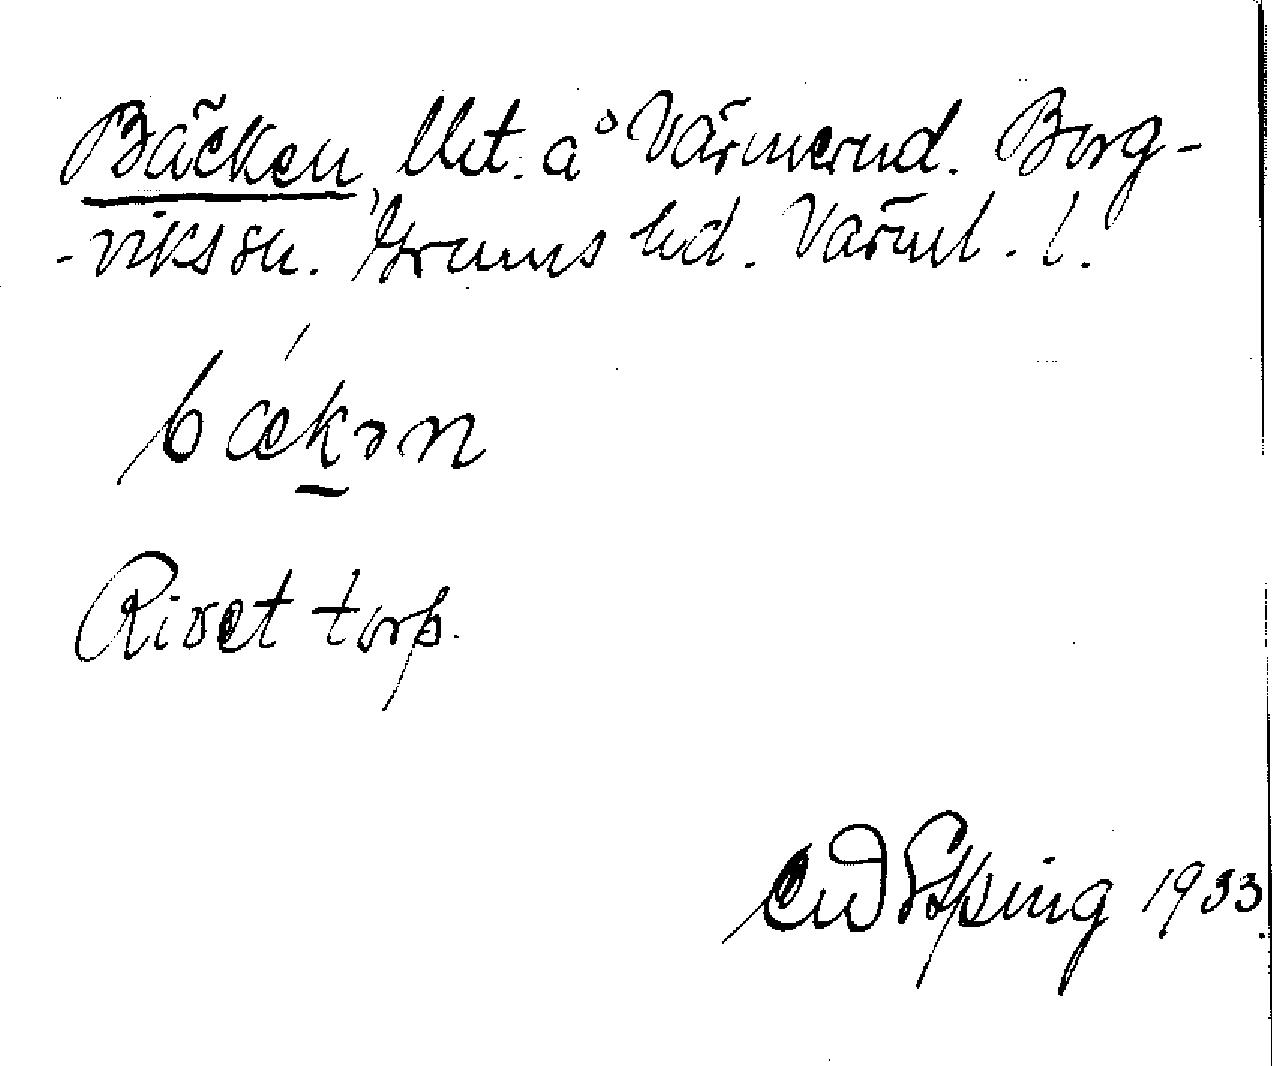 Bäcken, lht. å Värmerud. Borg-
-viks sn. Grums hd. Värml. l.
bækən
Rivet torp.
Epping 1933.